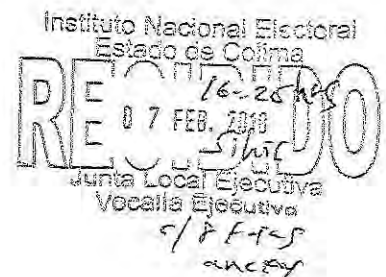 Instituto Nacional Electoral
Estado de Colima
RECIBIDO
16-25 hrs
07 FEB. 2018
Junta Local Ejecutiva
Vocalía Ejecutiva
c/8 Fojas
anexas